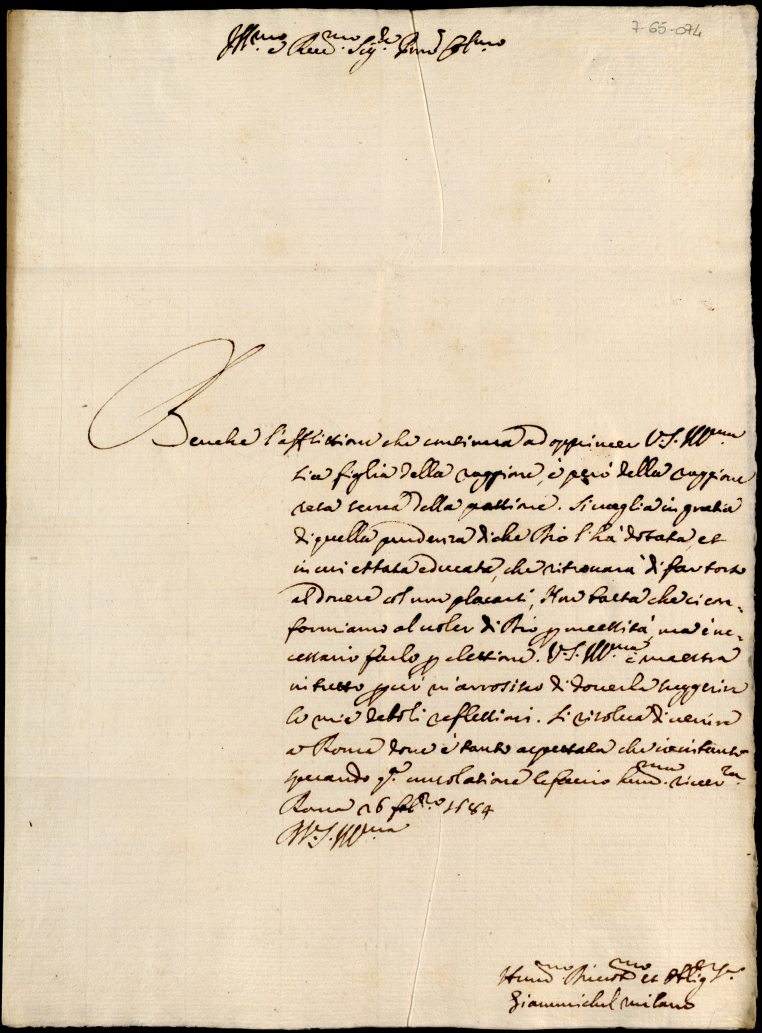 7 65-074
Ill.mo e Rev.mo Sig.re P.rone Col.mo
Benche l'afflittione che continua ad opprimer V.S. Ill.ma
sia figlia della raggione, è però della raggione
resa serva della passione. Si vaglia in gratia
di quella prudenza di che Dio l'hà dotata, et
in cui è stata educata, che ritrovarà di far torto
al dovere col non placarsi, Non basta che ci con-
formiamo al voler di Dio p necessità, ma è ne-
cessario farlo p elettione. V.S. Ill.ma è maestra
in tutto, però m'arrossisco di doverla suggerire
le mie deboli reflettioni. Si risolva di venire
a Roma dove è tanto aspettata che io intanto
sperando q.ta consolatione le faccio hum.ma river.za
Roma 26 feb.ro 1684
D V.S. Ill.ma
Hum.mo Divot.mo et Oblig.mo Ser.re
Giammichel Milano